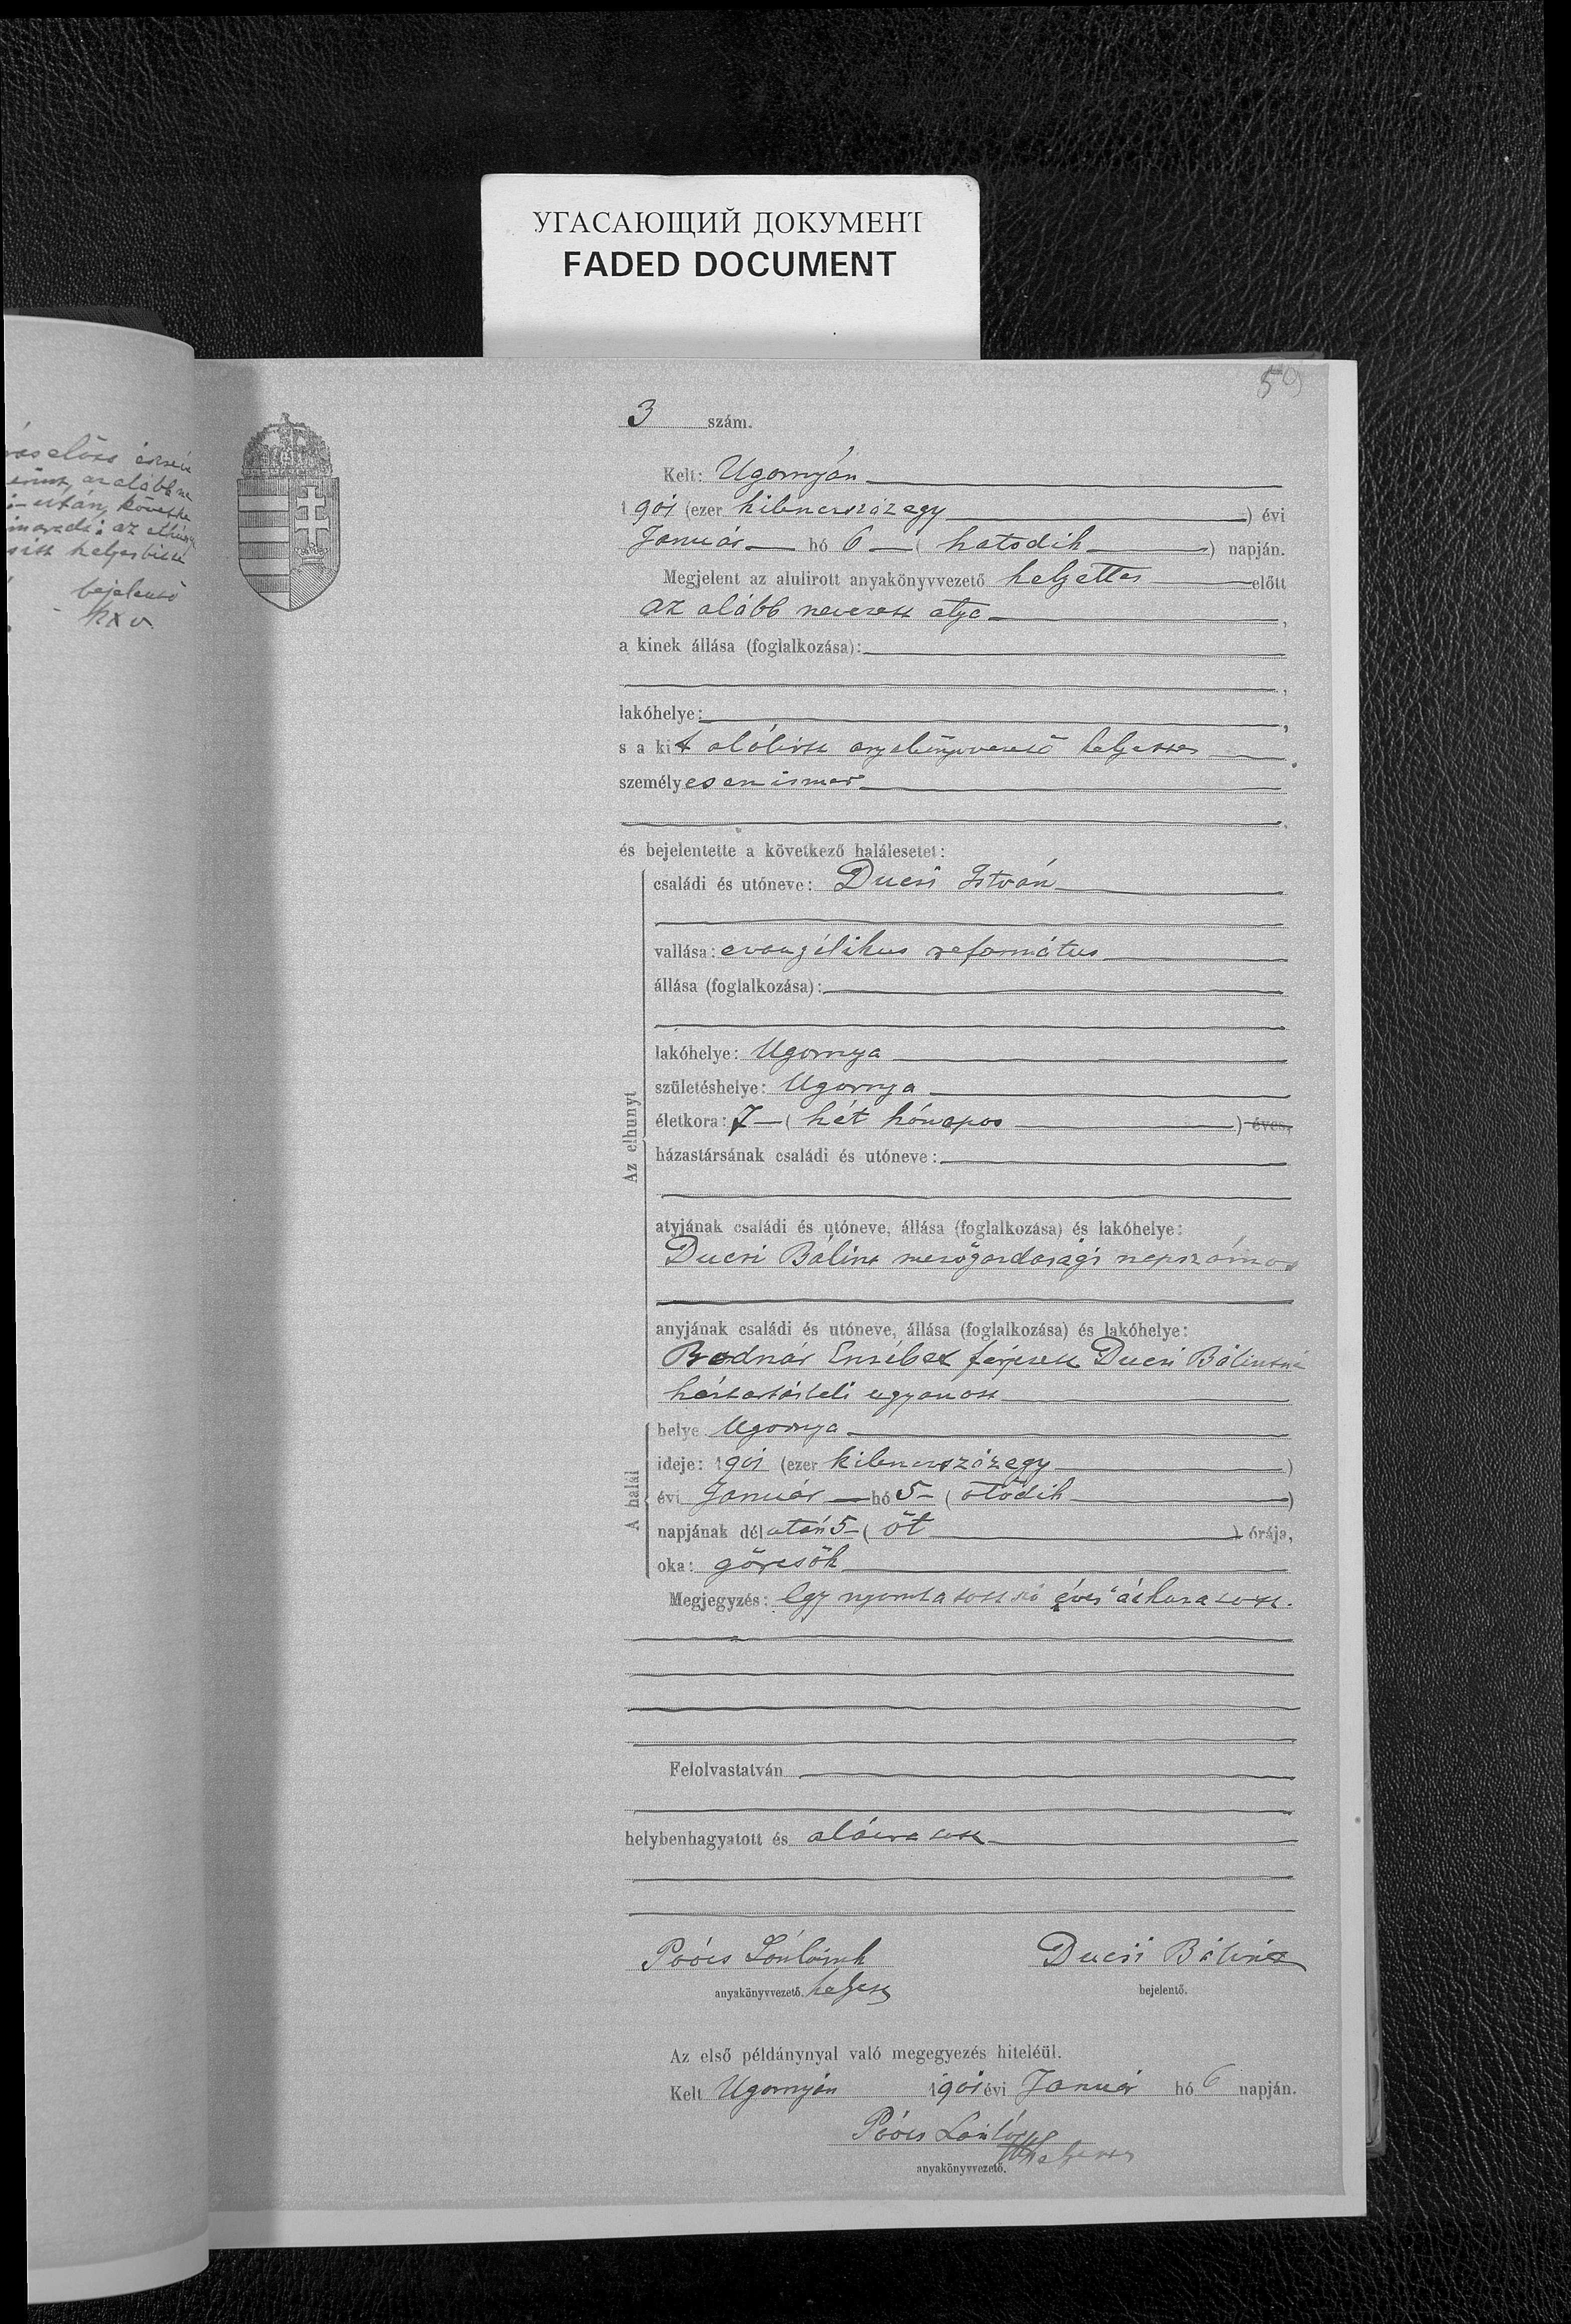 УГАСАЮЩИЙ ДОКУМЕНТ
FADED DOCUMENT
59
3 szám.
Kelt: Ugornyán
1901 (ezer kilencszázegy) évi
Január hó 6 (hatodik) napján.
Megjelent az alulirott anyakönyvvezető helyettes előtt
az alább nevezett atya,
a kinek állása (foglalkozása):
lakóhelye:
s a kit alólirott anyakönyvvezető helyettes
személyesen ismer
és bejelentette a következő halálesetet:
Az elhunyt
családi és utóneve: Ducsi István
vallása: evangélikus református
állása (foglalkozása):
lakóhelye: Ugornya
születéshelye: Ugornya
életkora: 7 (hét hónapos) éves,
házastársának családi és utóneve:
atyjának családi és utóneve, állása (foglalkozása) és lakóhelye:
Ducsi Bálint mezőgazdasági napszámos
anyjának családi és utóneve, állása (foglalkozása) és lakóhelye:
Bodnár Erzsébet férjezett Ducsi Bálintné
háztartásbeli ugyanott
A halál
helye Ugornya
ideje: 1901 (ezer kilencszázegy)
évi Január hó 5 (ötödik)
napjának délután 5 (öt) órája,
oka: görcsök
Megjegyzés: Egy nyomtatott szó "éves" áthuzatott.
Felolvastatván
helybenhagyatott és aláiratott
Poócs
anyakönyvvezető. helyettes
Ducsi Bálint
bejelentő.
Az első példánynyal való megegyezés hiteléül.
Kelt Ugornyán 1901 évi Január hó 6 napján.
Poócs
helyettes
anyakönyvvezető.
az alább
után, követke
az elhúny
helyesbitte
bejelentő